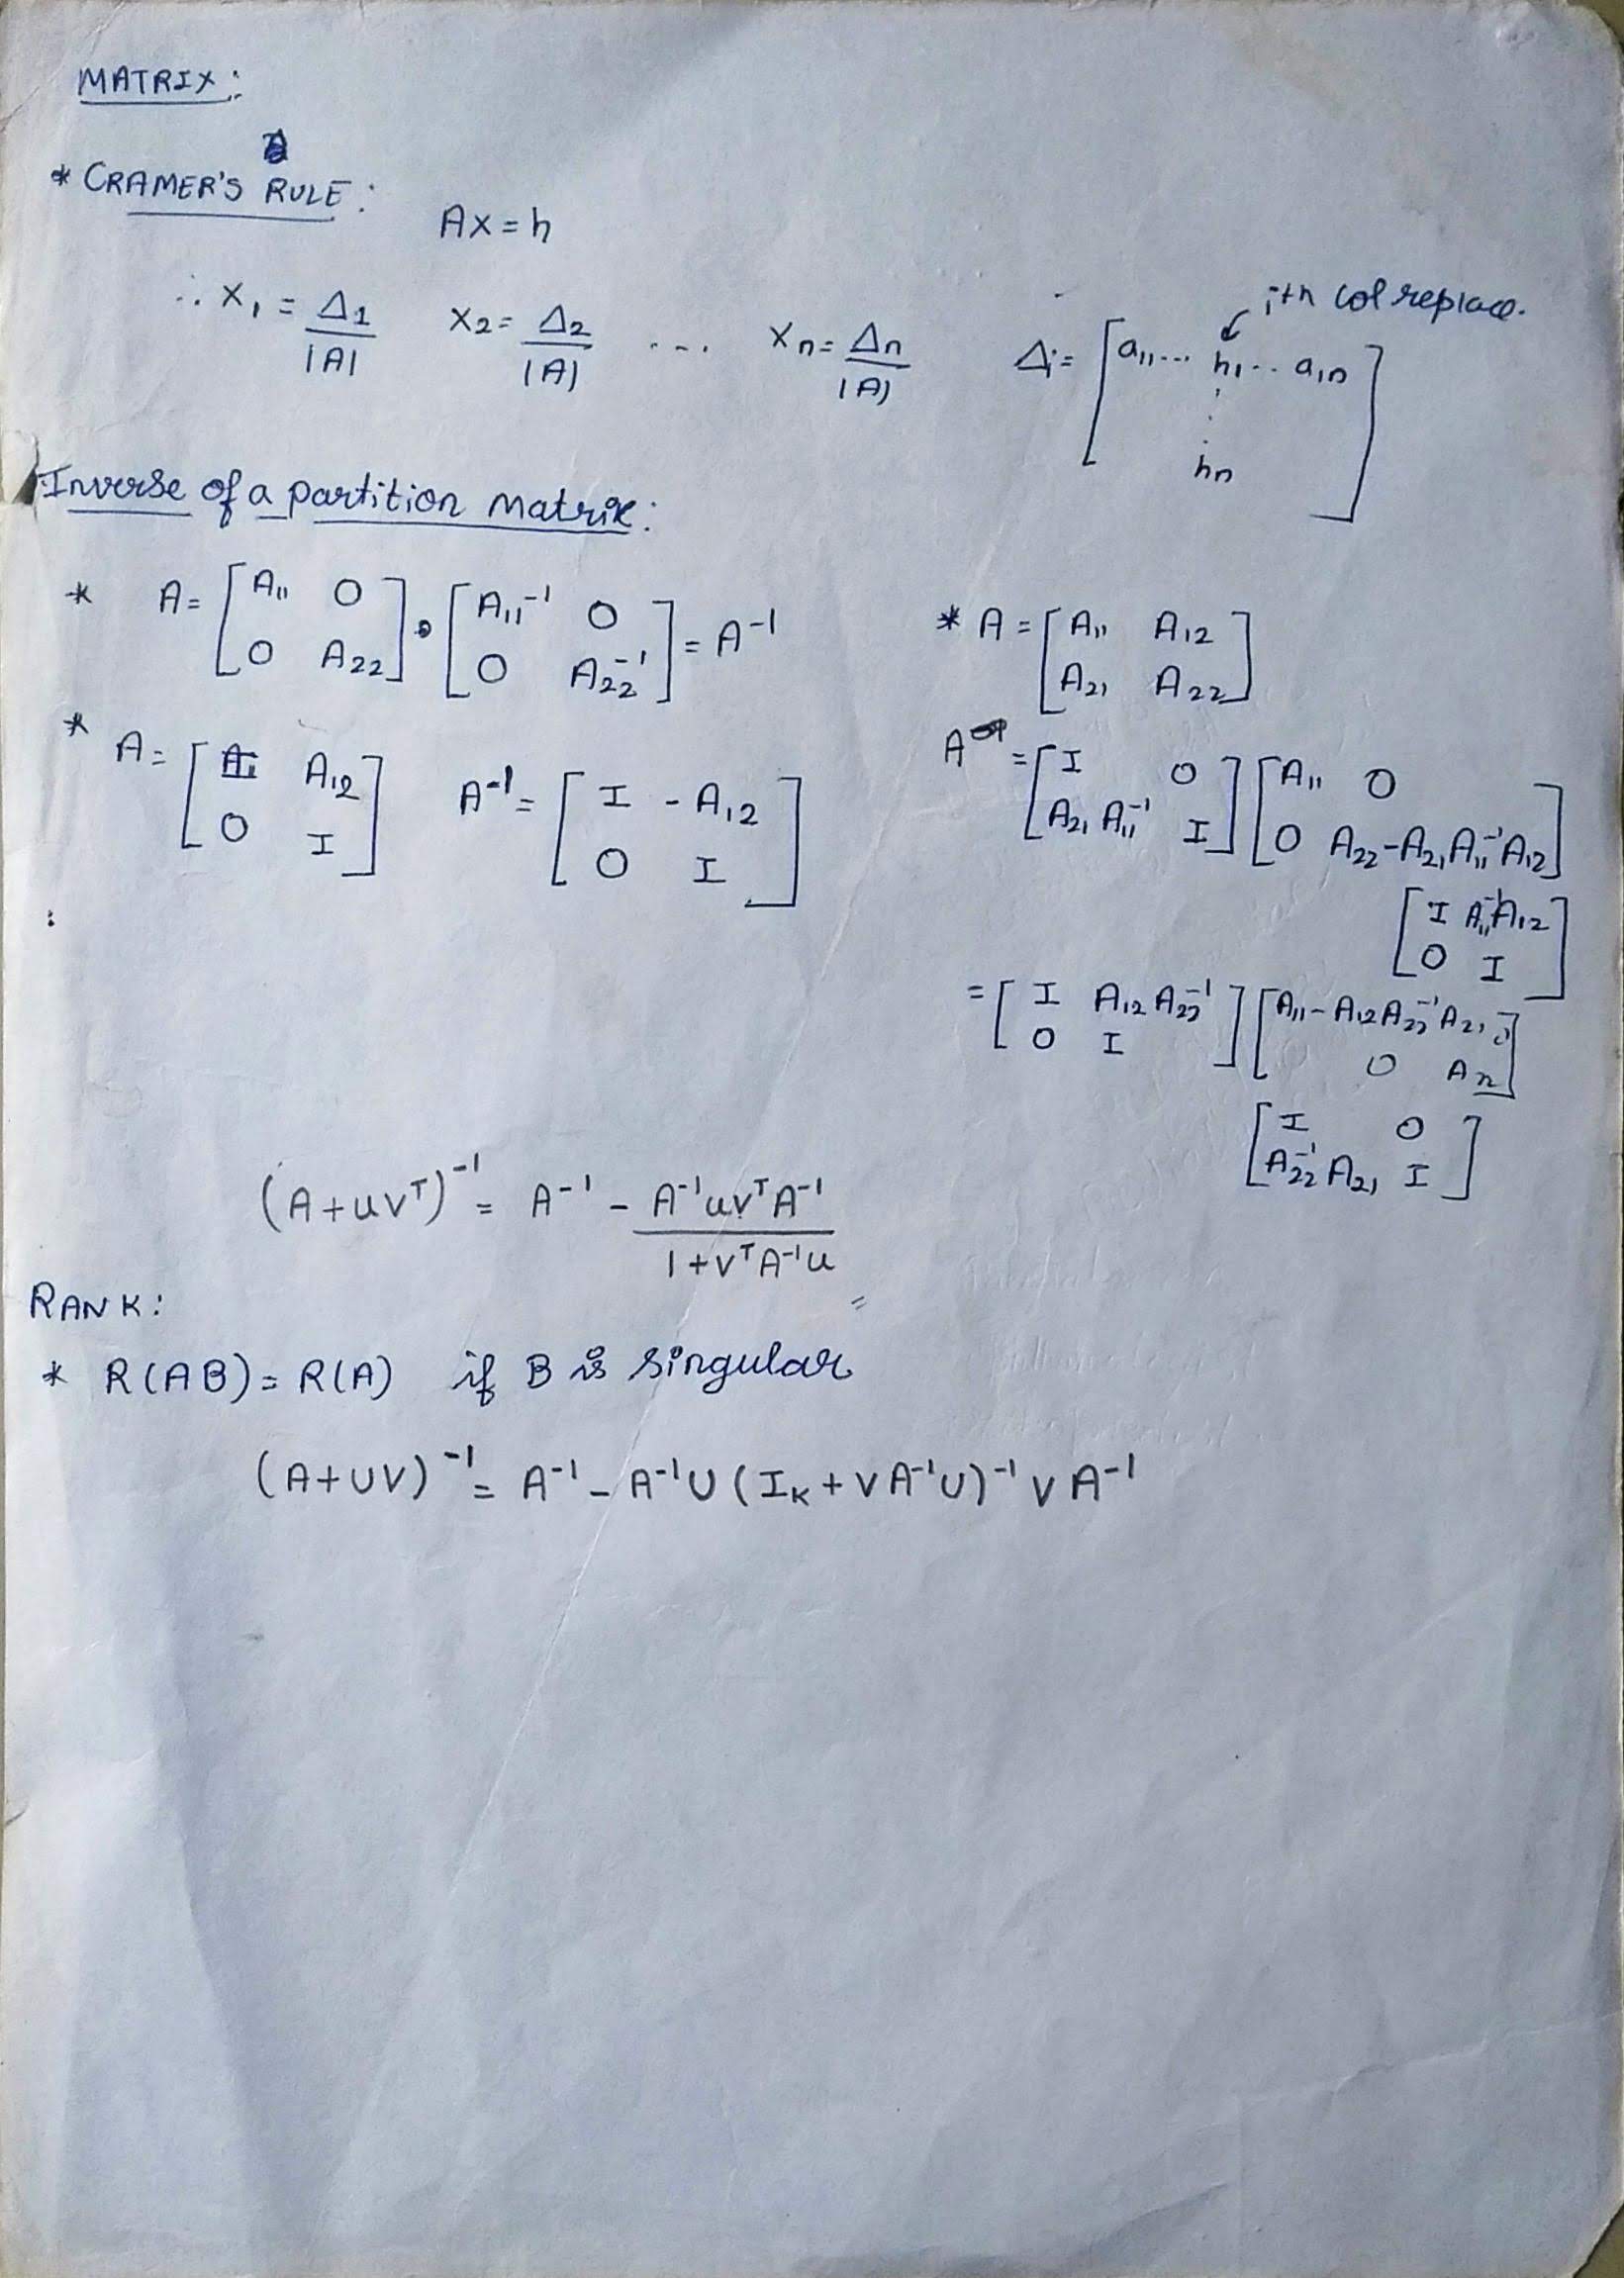 MATRIX:
* CRAMER'S RULE:
AX = h
∴ X₁ = Δ₁/|A|   X₂ = Δ₂/|A|   ...   Xn = Δn/|A|   Δi = [a₁₁... h₁... a₁n
⋮
hn]
ith col replace.
Inverse of a partition matrix:
* A = [A₁₁ 0
0 A₂₂] , [A₁₁⁻¹ 0
0 A₂₂⁻¹] = A⁻¹
* A = [I A₁₂
0 I]   A⁻¹ = [I -A₁₂
0 I]
* A = [A₁₁ A₁₂
A₂₁ A₂₂]
A = [I 0
A₂₁A₁₁⁻¹ I] [A₁₁ 0
0 A₂₂-A₂₁A₁₁⁻¹A₁₂]
[I A₁₁⁻¹A₁₂
0 I]
= [I A₁₂A₂₂⁻¹
0 I] [A₁₁-A₁₂A₂₂⁻¹A₂₁ 0
0 A₂₂]
[I 0
A₂₂⁻¹A₂₁ I]
(A+uvᵀ)⁻¹ = A⁻¹ - A⁻¹uvᵀA⁻¹/1+vᵀA⁻¹u
RANK:
* R(AB) = R(A) if B is singular
(A+UV)⁻¹ = A⁻¹ - A⁻¹U(Iₖ+VA⁻¹U)⁻¹VA⁻¹